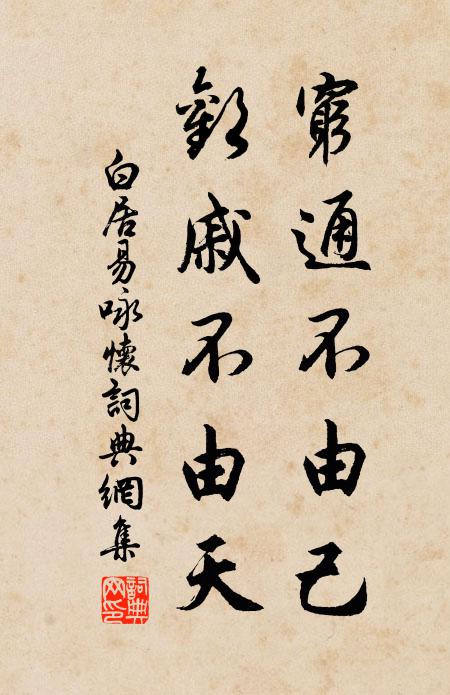 窮通不由己
歡戚不由天
白居易咏懷詞典網集
詞典網印